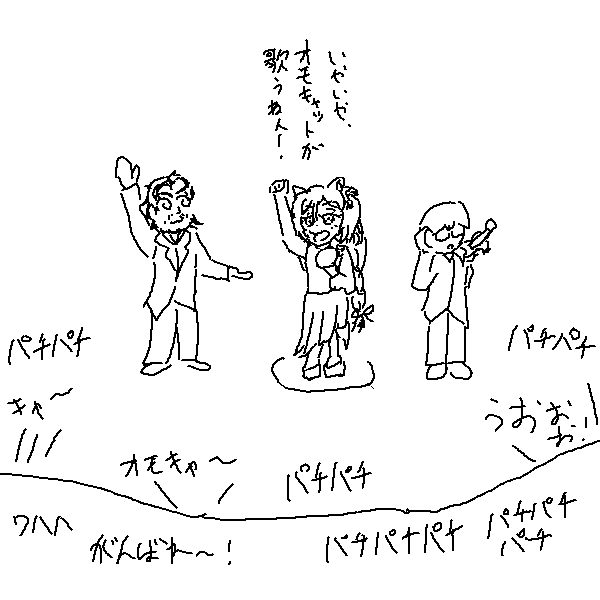 いやいや、
オモキャットが
歌うねん！
パチパチ
パチパチ
キャ〜
うおおお！
オモキャ〜
パチパチ
ワハハ
がんばれ〜！
パチパチパチ
パチパチ
パチ